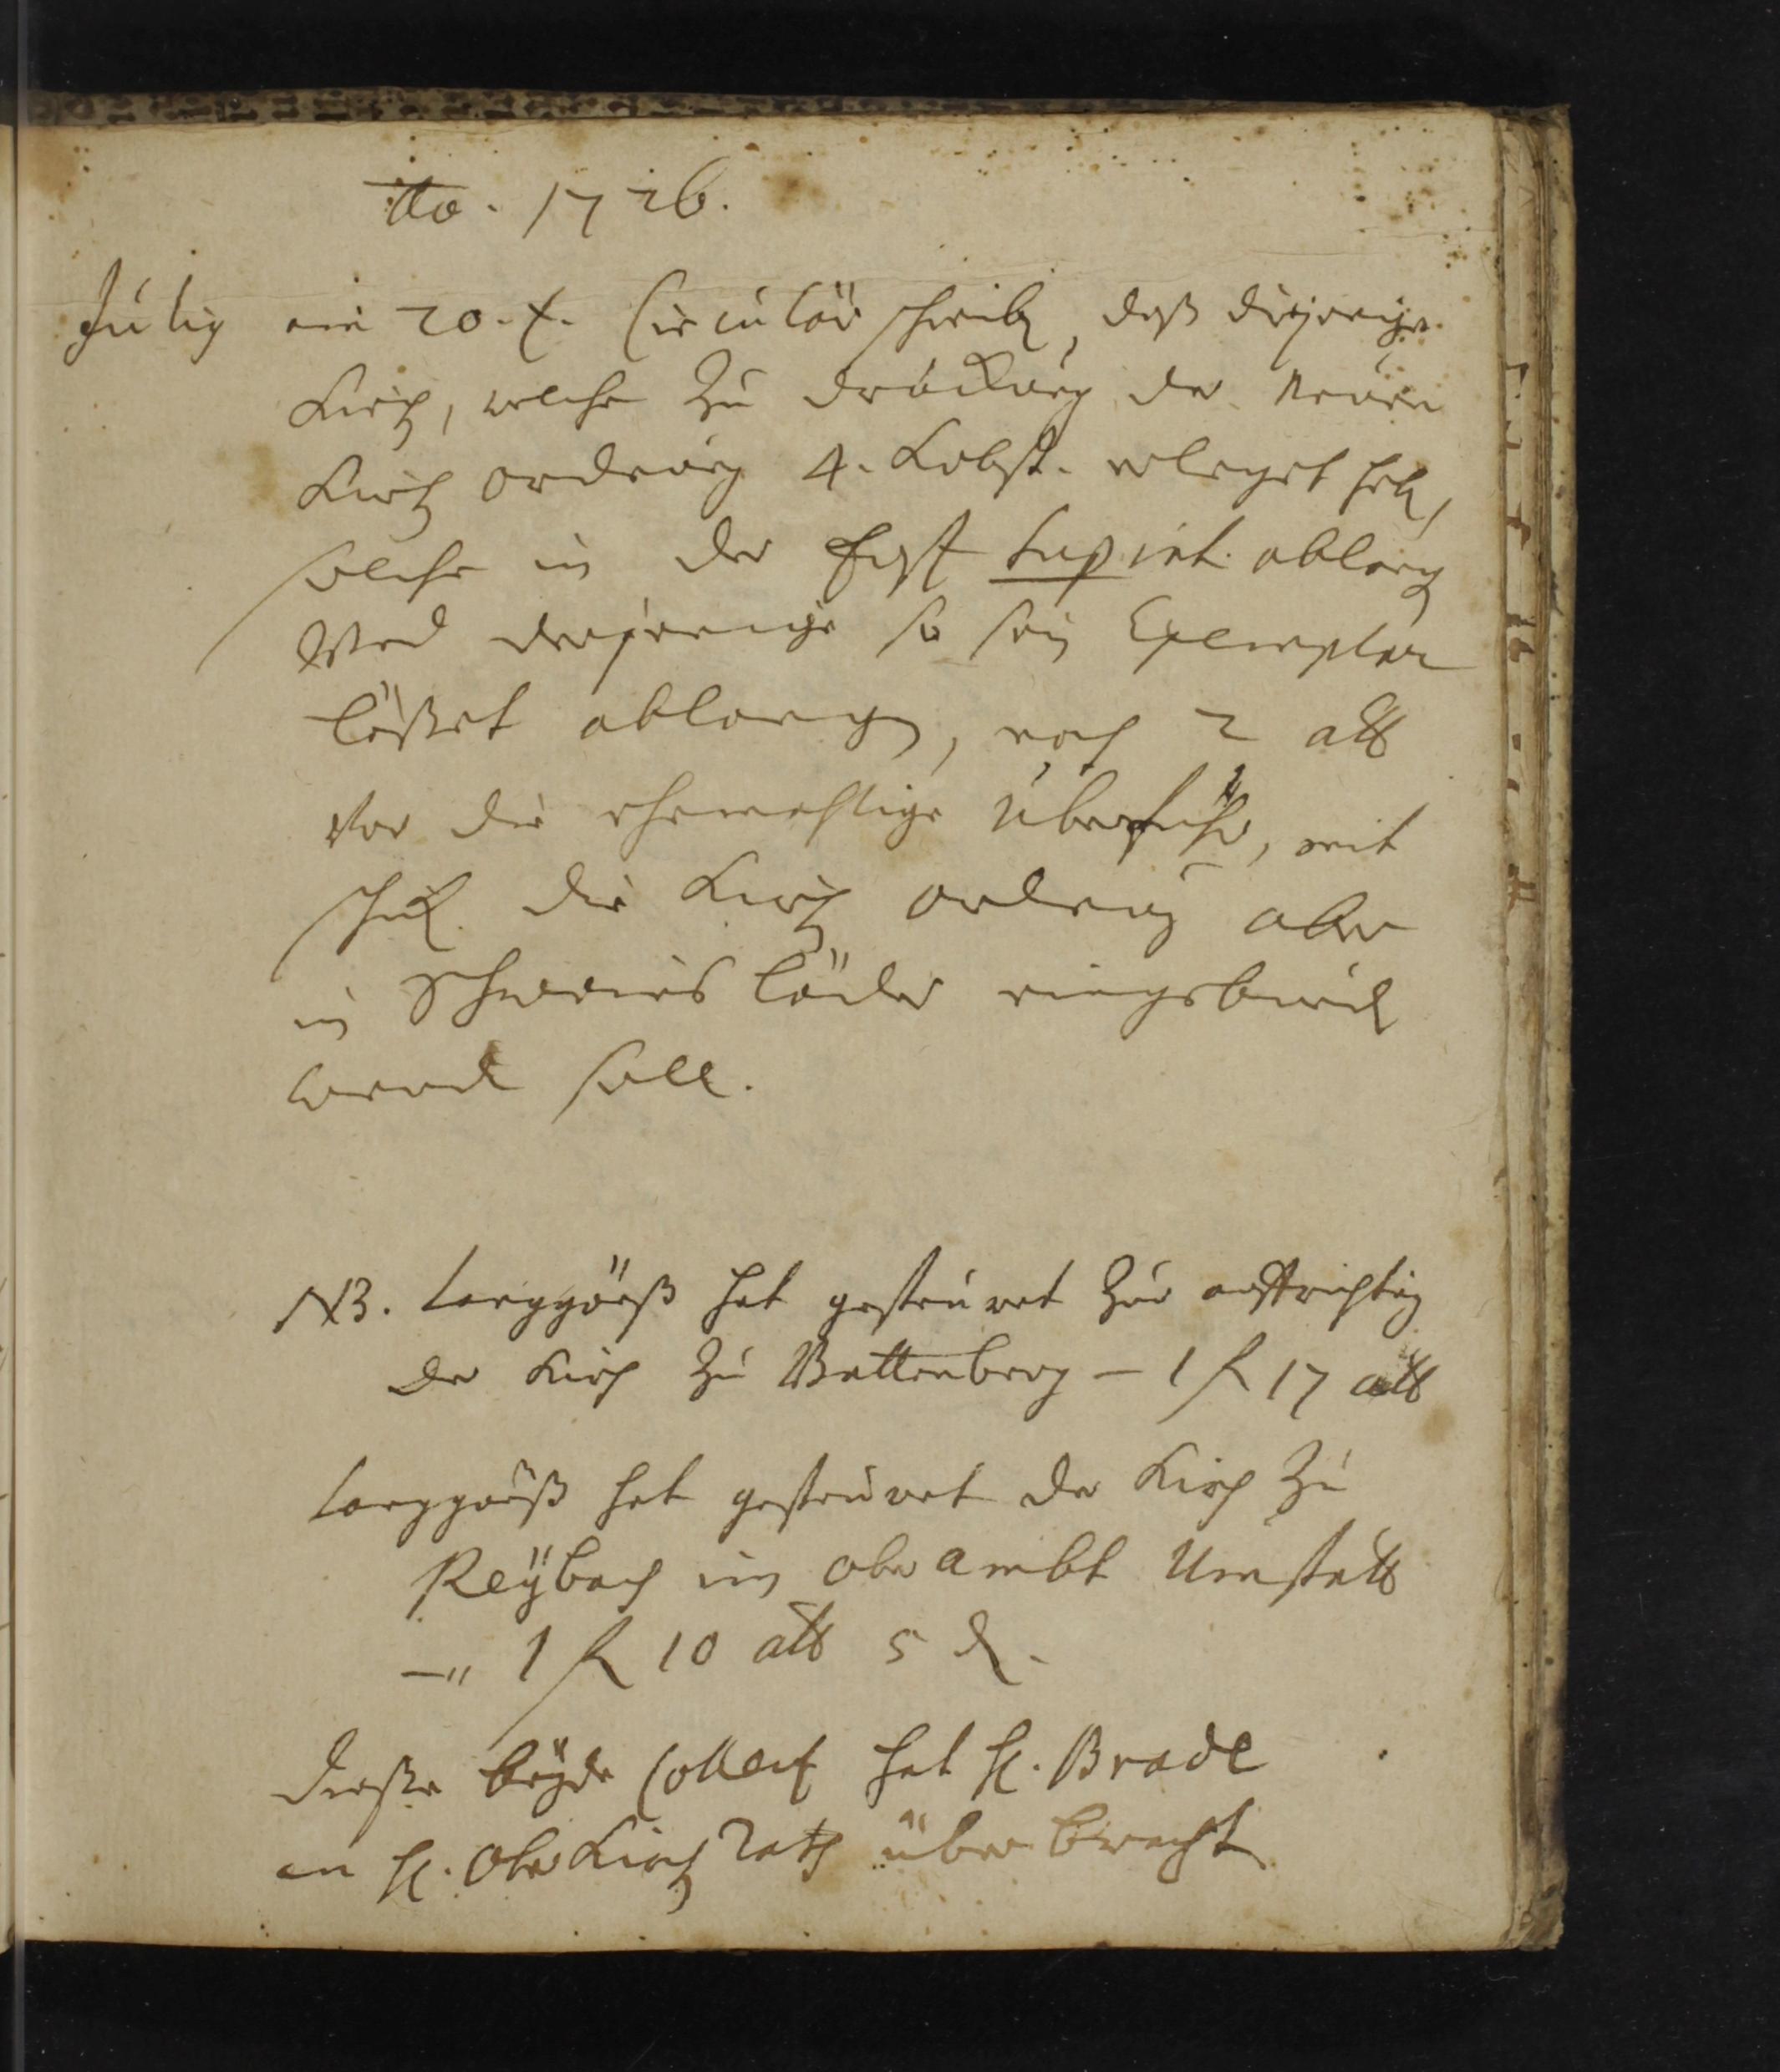 Ao. 1726.
Julij ein 20. t. Circular schreib, daß diejenige
Kirch, welche zu druckung der Neuen
Kirch ordnung 4. Kobst. erleget hab,
solche in der ablang
Und derjenige so sein Exemplar
läßet ablangen, noch 2 alb
vor die ehemahlige überfuhr, mit
schick die Kirch ordnung aber
in Schweins läder eingebund
werd soll.
NB. Langgönß hat gesteuret zur auffrichtung
der Kirch zu Battenberg – 1 fl 17 alb
Langgönß hat gesteuret der Kirch zu
Reÿbach im ober ambt Umstatt
–" 1 fl 10 alb 5 d.
Diesse beÿde Collect hat H. Brade
an H. Ober Kirch Rath überbracht